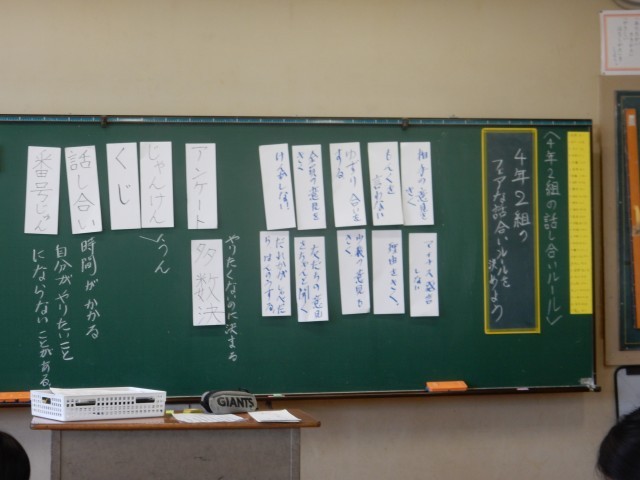 〈4年2組の話し合いルール〉
4年2組の
フェアな話合いルールを
決めよう
相手の意見を
きく
もんくを
言わない
ゆずり合いを
する
全員の意見を
きく
け合しない
マイナス発言
しない
理由をきく
少数の意見も
きく
アンケート
多数決
やりたくないのに決まる
じゃんけん
うん
くじ
話し合い
時間がかかる
自分がやりたいこと
にならないことがある。
番号じゃん
GIANTS